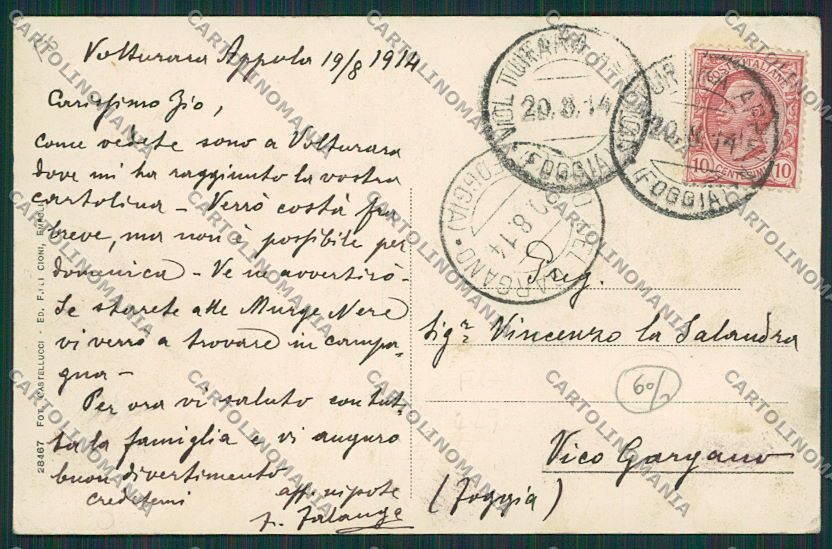 Volturara Appula 19/8 1914
Carissimo Zio,
come vedete sono a Volturara
dove mi ha raggiunto la vostra
cartolina - Verrò costà fra
breve, ma non è possibile per
domenica - Ve ne avvertirò -
Se starete alle Murge Nere
vi verrò a trovare in campa-
gna -
Per ora vi saluto con tut-
ta la famiglia e vi auguro
buon divertimento
credetemi
aff. nipote
28467 FOT. CASTELLUCCI - ED. F.LLI CIONI,
20.8.14
(FOGGIA)
20.8.14
(FOGGIA)
POSTE ITALIANE
10 CENTESIMI 10
DEL GARGANO
(FOGGIA)
8.14
Sigr Vincenzo la Salandra
60/
Vico Gargano
(Foggia)
CARTOLINOMANIA